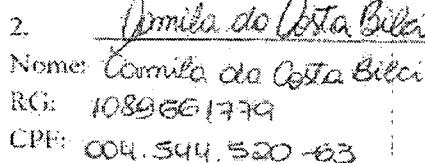 2. Camila da Costa Bilci
Nome: Camila da Costa Bilci
RG: 1089661779
CPF: 004.544.520-63